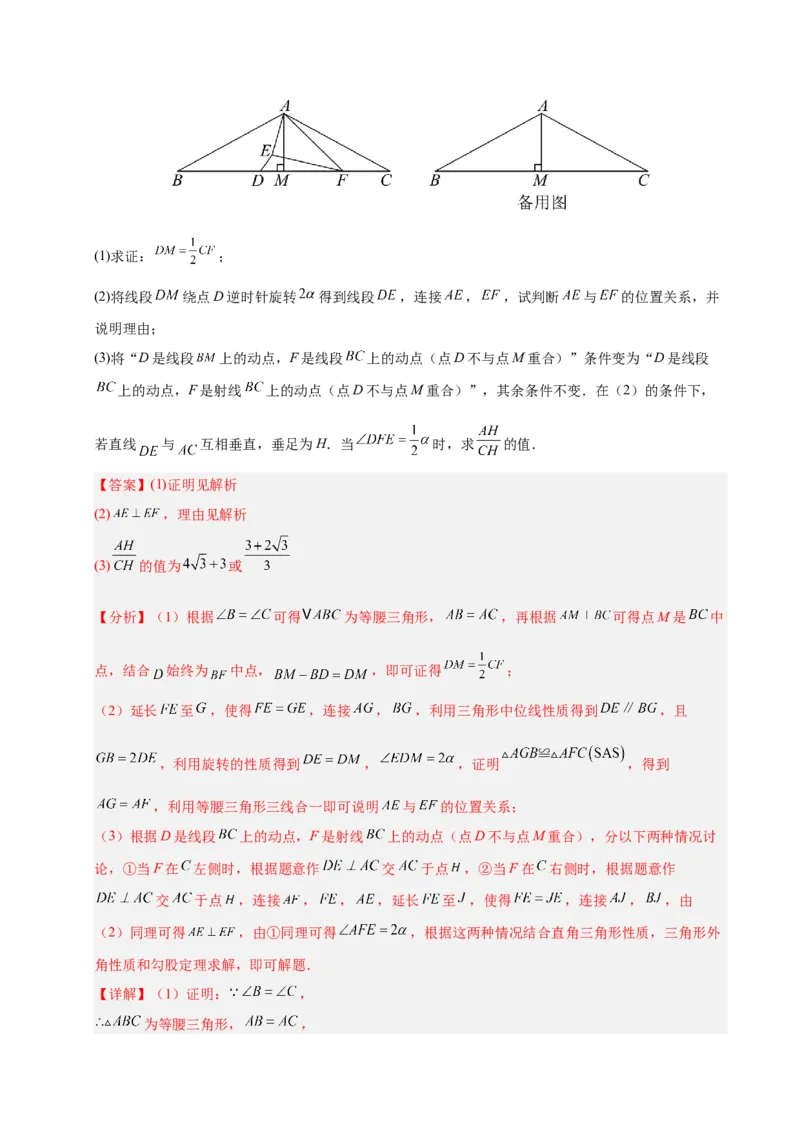 A A
E
B D M F C B M C
备用图
(1)求证：DM=1/2CF；
(2)将线段DM绕点D逆时针旋转2α得到线段DE，连接AE，EF，试判断AE与EF的位置关系，并
说明理由；
(3)将“D是线段BM上的动点，F是线段BC上的动点（点D不与点M重合）”条件变为“D是线段
BC上的动点，F是射线BC上的动点（点D不与点M重合）”，其余条件不变．在（2）的条件下，
若直线DE与AC互相垂直，垂足为H．当∠DFE=1/2α时，求AH/CH的值．
【答案】(1)证明见解析
(2)AE⊥EF，理由见解析
(3)AH/CH的值为4√3+3或(3+2√3)/3
【分析】（1）根据∠B=∠C可得VABC为等腰三角形，AB=AC，再根据AM⊥BC可得点M是BC中
点，结合D始终为BF中点，BM−BD=DM，即可证得DM=1/2CF；
（2）延长FE至G，使得FE=GE，连接AG，BG，利用三角形中位线性质得到DE∥BG，且
GB=2DE，利用旋转的性质得到DE=DM，∠EDM=2α，证明△AGB≌△AFC(SAS)，得到
AG=AF，利用等腰三角形三线合一即可说明AE与EF的位置关系；
（3）根据D是线段BC上的动点，F是射线BC上的动点（点D不与点M重合），分以下两种情况讨
论，①当F在C左侧时，根据题意作DE⊥AC交AC于点H，②当F在C右侧时，根据题意作
DE⊥AC交AC于点H，连接AF，FE，AE，延长FE至J，使得FE=JE，连接AJ，BJ，由
（2）同理可得AE⊥EF，由①同理可得∠AFE=2α，根据这两种情况结合直角三角形性质，三角形外
角性质和勾股定理求解，即可解题．
【详解】（1）证明：∵∠B=∠C，
∴△ABC为等腰三角形，AB=AC，